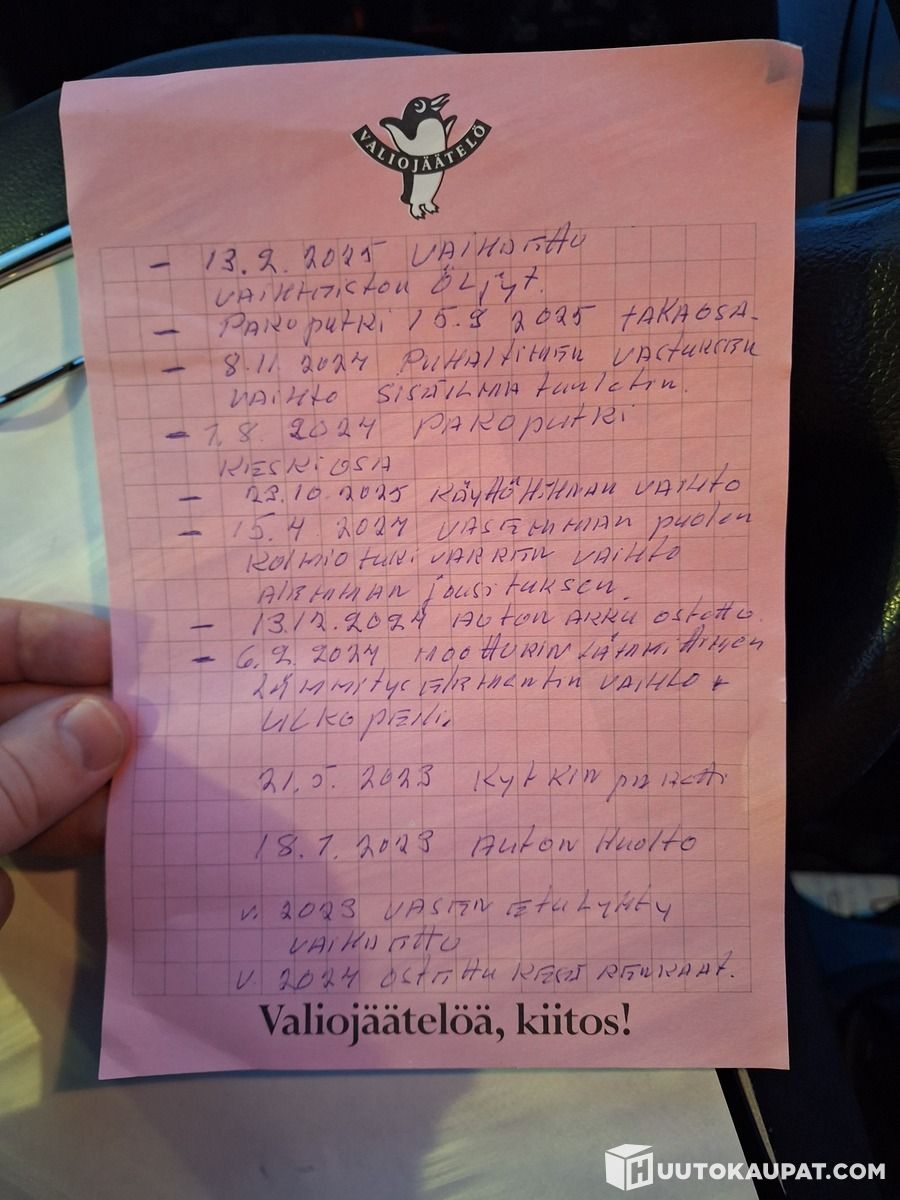 VALIOJÄÄTELÖ
- 13.2. 2025 VAIHDETTU
VAIHTEISTON ÖLJYT.
- PAKOPUTKI 15.9 2025 TAKAOSA-
- 8.11. 2024 PUHALTIMEN VASTUKSEN
VAIHTO SISÄILMA tuuletin.
- 1.8. 2024 PAKOPUTKI
KESKIOSA
- 23.10.2025 KÄYTTÖHIHNAN VAIHTO
- 15.4 2024 VASEMMAN puolen
KOLMIOTUKIVARREN VAIHTO
ALEMMAN jousituksen.
- 13.12.2024 AUTON AKKU OSTETTU.
- 6.2. 2024 MOOTTORIN LÄMMITTIMEN
LÄMMITYSELEMENTIN VAIHTO +
ULKOPEILI.
21.5. 2023 KYTKIN paketti
18.1. 2023 AUTON HUOLTO
v. 2023 VASEN ETULYHTY
VAIHDETTU
v. 2024 OSTETTU KESÄRENKAAT.
Valiojäätelöä, kiitos!
HUUTOKAUPAT.COM